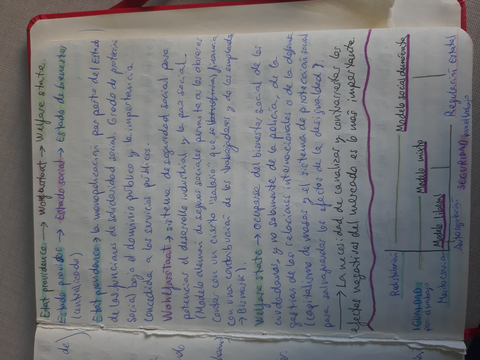 Etat providence → Wohlfahrtstaat → Welfare state.
Estado providencia → Estado social → Estado de bienestar
(centralizado)
Etat providence → la monopolización por parte del Estado
de las funciones de solidaridad social. Grado de protección
social bajo el dominio público y la importancia
concedida a los servicios públicos.
Wohlfahrtstaat → sistema de seguridad social para
potenciar el desarrollo industrial y la paz social.
(Modelo alemán de seguros sociales permite a los obreros
contar con un cierto "salario" que se financia
con una contribución de los trabajadores y de los empleadores
→ Bismark)
Welfare state → Ocuparse del bienestar social de los
ciudadanos y no solamente de la policía, de la
gestión de las relaciones internacionales o de la defensa
(capitalismo de masas y el sistema de protección social
para salvaguardar los efectos de la desigualdad)
→ La necesidad de canalizar y contrarrestar los
efectos negativos del mercado es lo más importante
Redistribución
Modelo socialdemócrata
Modelo mixto
IGUALDAD
Modelo liberal
Autorregulación
SEGURIDAD
Regulación estatal